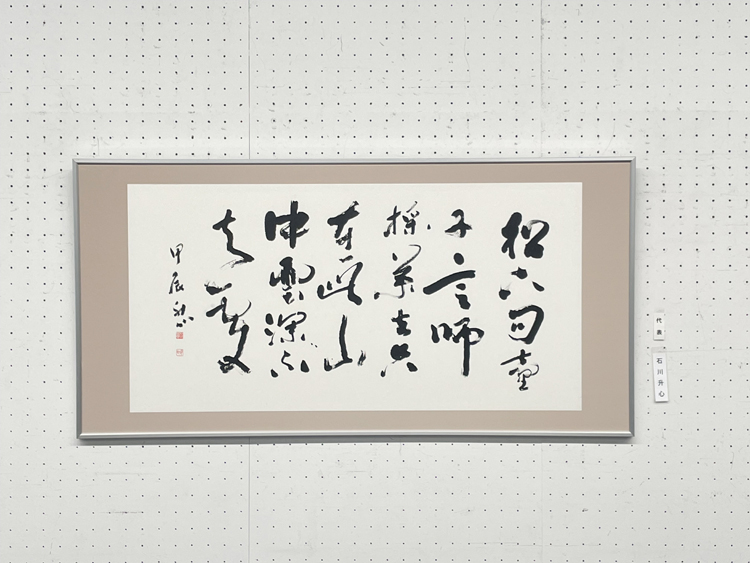 松下問童
子言師
採藥去只
在此山
中雲深不
知處
甲辰
代表
石川升心